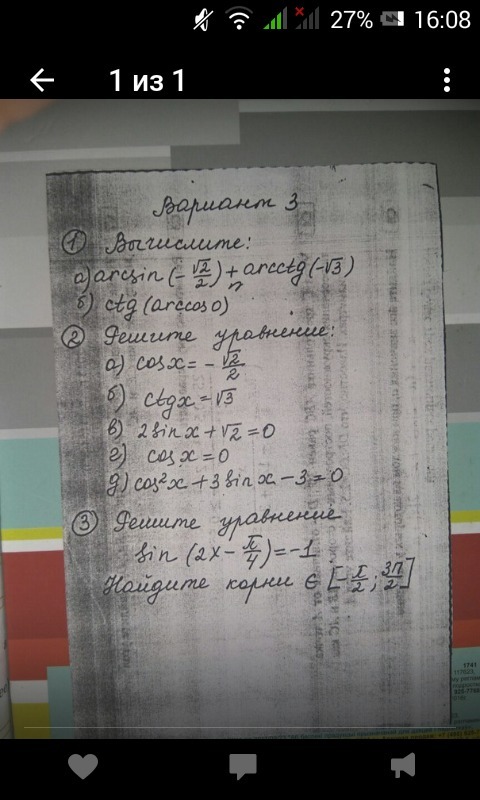 27% 16:08
1 из 1
Вариант 3
① Вычислите:
а) arcsin (-√2/2) + arcctg (-√3)
б) ctg (arccos 0)
② Решите уравнение:
а) cos x = -√2/2
б) ctg x = √3
в) 2 sin x + √2 = 0
г) cos x = 0
д) cos²x + 3 sin x - 3 = 0
③ Решите уравнение
sin (2x - π/4) = -1
Найдите корни ∈ [-π/2; 3π/2]
1741